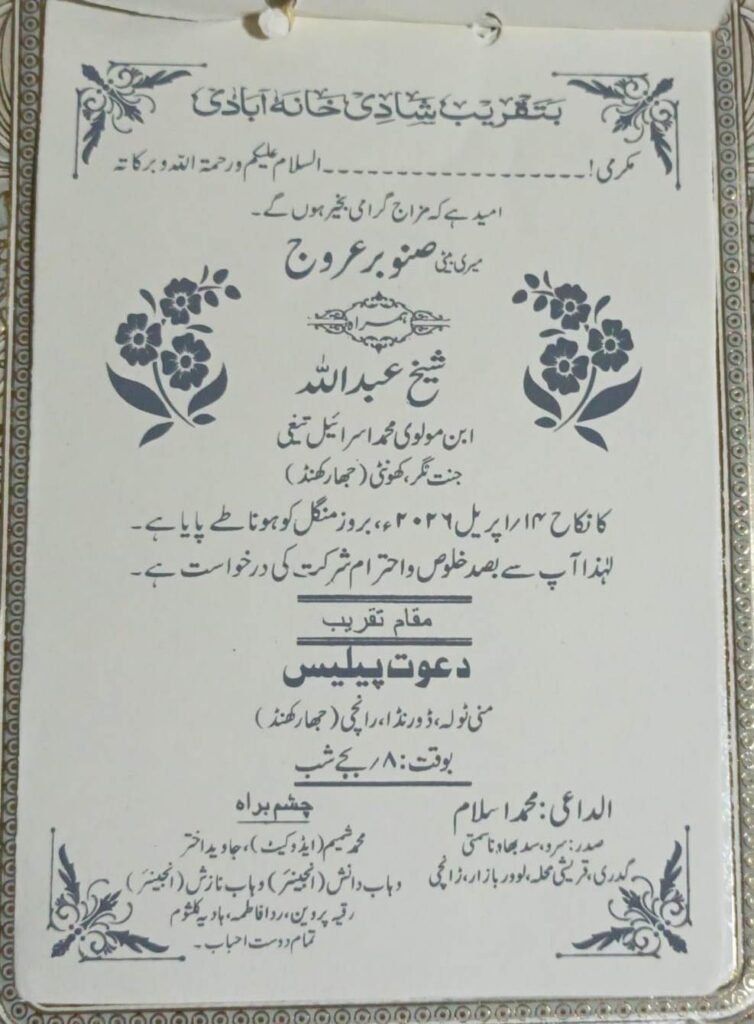 بتقریب شادی خانہ آبادی
مکرمی!ـــــــــــــــــــــــــــــــــالسلام علیکم ورحمۃ اللہ وبرکاتہ
امید ہے کہ مزاج گرامی بخیر ہوں گے۔
میری بیٹی صنوبر عروج
ہمراہ
شیخ عبداللہ
ابن مولوی محمد اسرائیل تیغی
جنت نگر، کھونٹی (جھارکھنڈ)
کا نکاح ۱۴/اپریل ۲۰۲۶ء، بروز منگل کو ہونا طے پایا ہے۔
لہٰذا آپ سے بصد خلوص واحترام شرکت کی درخواست ہے۔
مقام تقریب
دعوت پیلیس
منی ٹولہ، ڈورنڈا، رانچی (جھارکھنڈ)
بوقت: ۸/بجے شب
الداعی: محمد اسلام
صدر: سرو، سدبھاونا سمتی
گدری، قریشی محلہ، لوور بازار، رانچی
چشم براہ
محمد شمیم (ایڈوکیٹ)، جاوید اختر
وہاب دانش (انجینئر) وہاب نازش (انجینئر)
رقیہ پروین، ردا فاطمہ، ہادیہ کلثوم
تمام دوست احباب۔